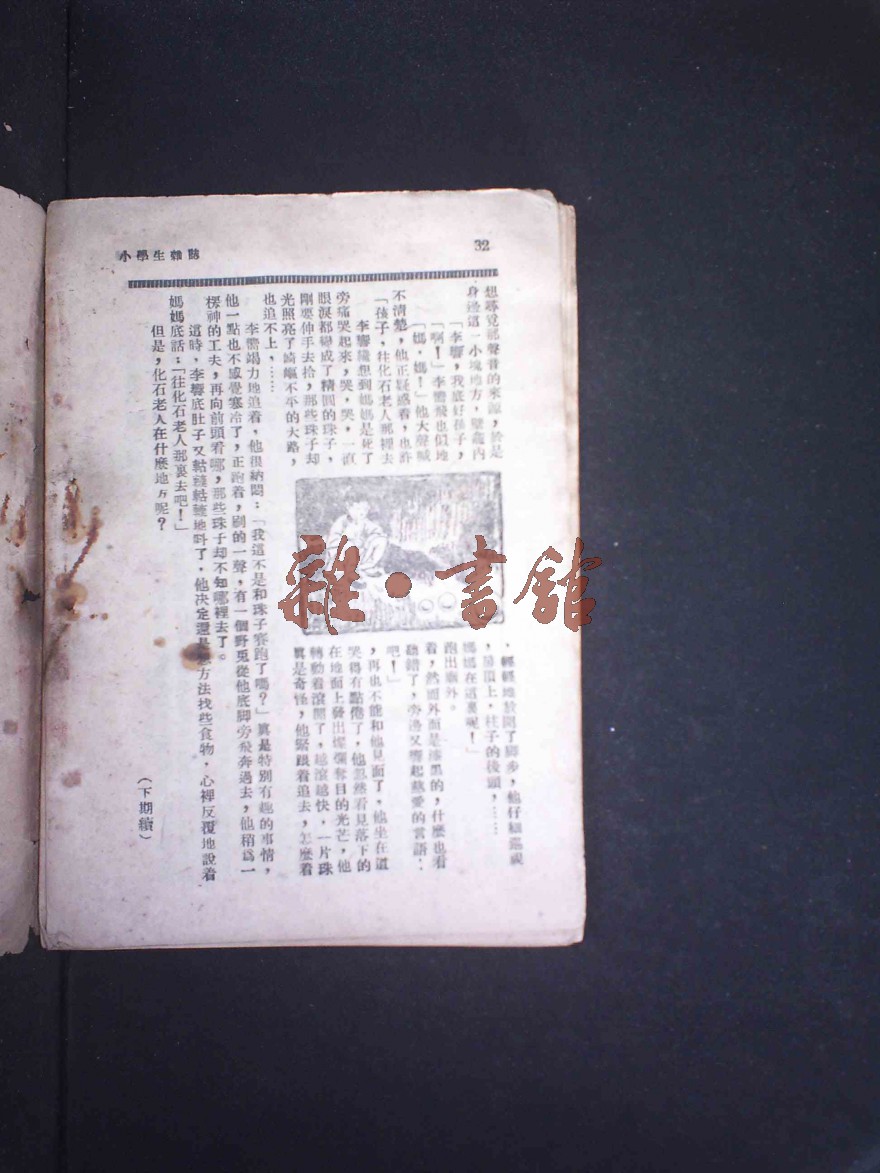 小學生雜誌
32
想尋覓那聲音的來源，於是，輕輕地放開了脚步，他仔細巡視
身邊這一小塊地方，壁龕內，吊頂上，柱子的後頭，……
「李響，我底好孩子，媽媽在這裏呢！」
「啊！」李響飛也似地跑出廟外。
「媽，媽！」他大聲喊着，然而外面是漆黑的，什麼也看
不清楚，他正疑惑着，也許聽錯了，旁邊又響起慈愛的言語：
「孩子，往化石老人那裡去吧！」
李響想到媽媽是死了，再也不能和他見面了，他坐在道
旁痛哭起來，哭，哭，一直哭得有點倦了，他忽然看見落下的
眼淚都變成了精圓的珠子，在地面上發出燦爛奪目的光芒，他
剛要伸手去拾，那些珠子却轉動着滾開了，越滾越快，一片珠
光照亮了崎嶇不平的大路，真是奇怪，他緊跟着追去，怎麼着
也追不上，……
李響竭力地追着，他很納悶：「我這不是和珠子賽跑了嗎？」真是特別有趣的事情，
他一點也不感覺寒冷了，正跑着，刷的一聲，有一個野兎從他底脚旁飛奔過去，他稍爲一
楞神的工夫，再向前頭看哪，那些珠子却不知哪裡去了。
這時，李響底肚子又轆轆地呌了，他决定還是方法找些食物，心裡反覆地說着
媽媽底話：「往化石老人那裏去吧！」
但是，化石老人在什麼地方呢？
（下期續）
雜·書館